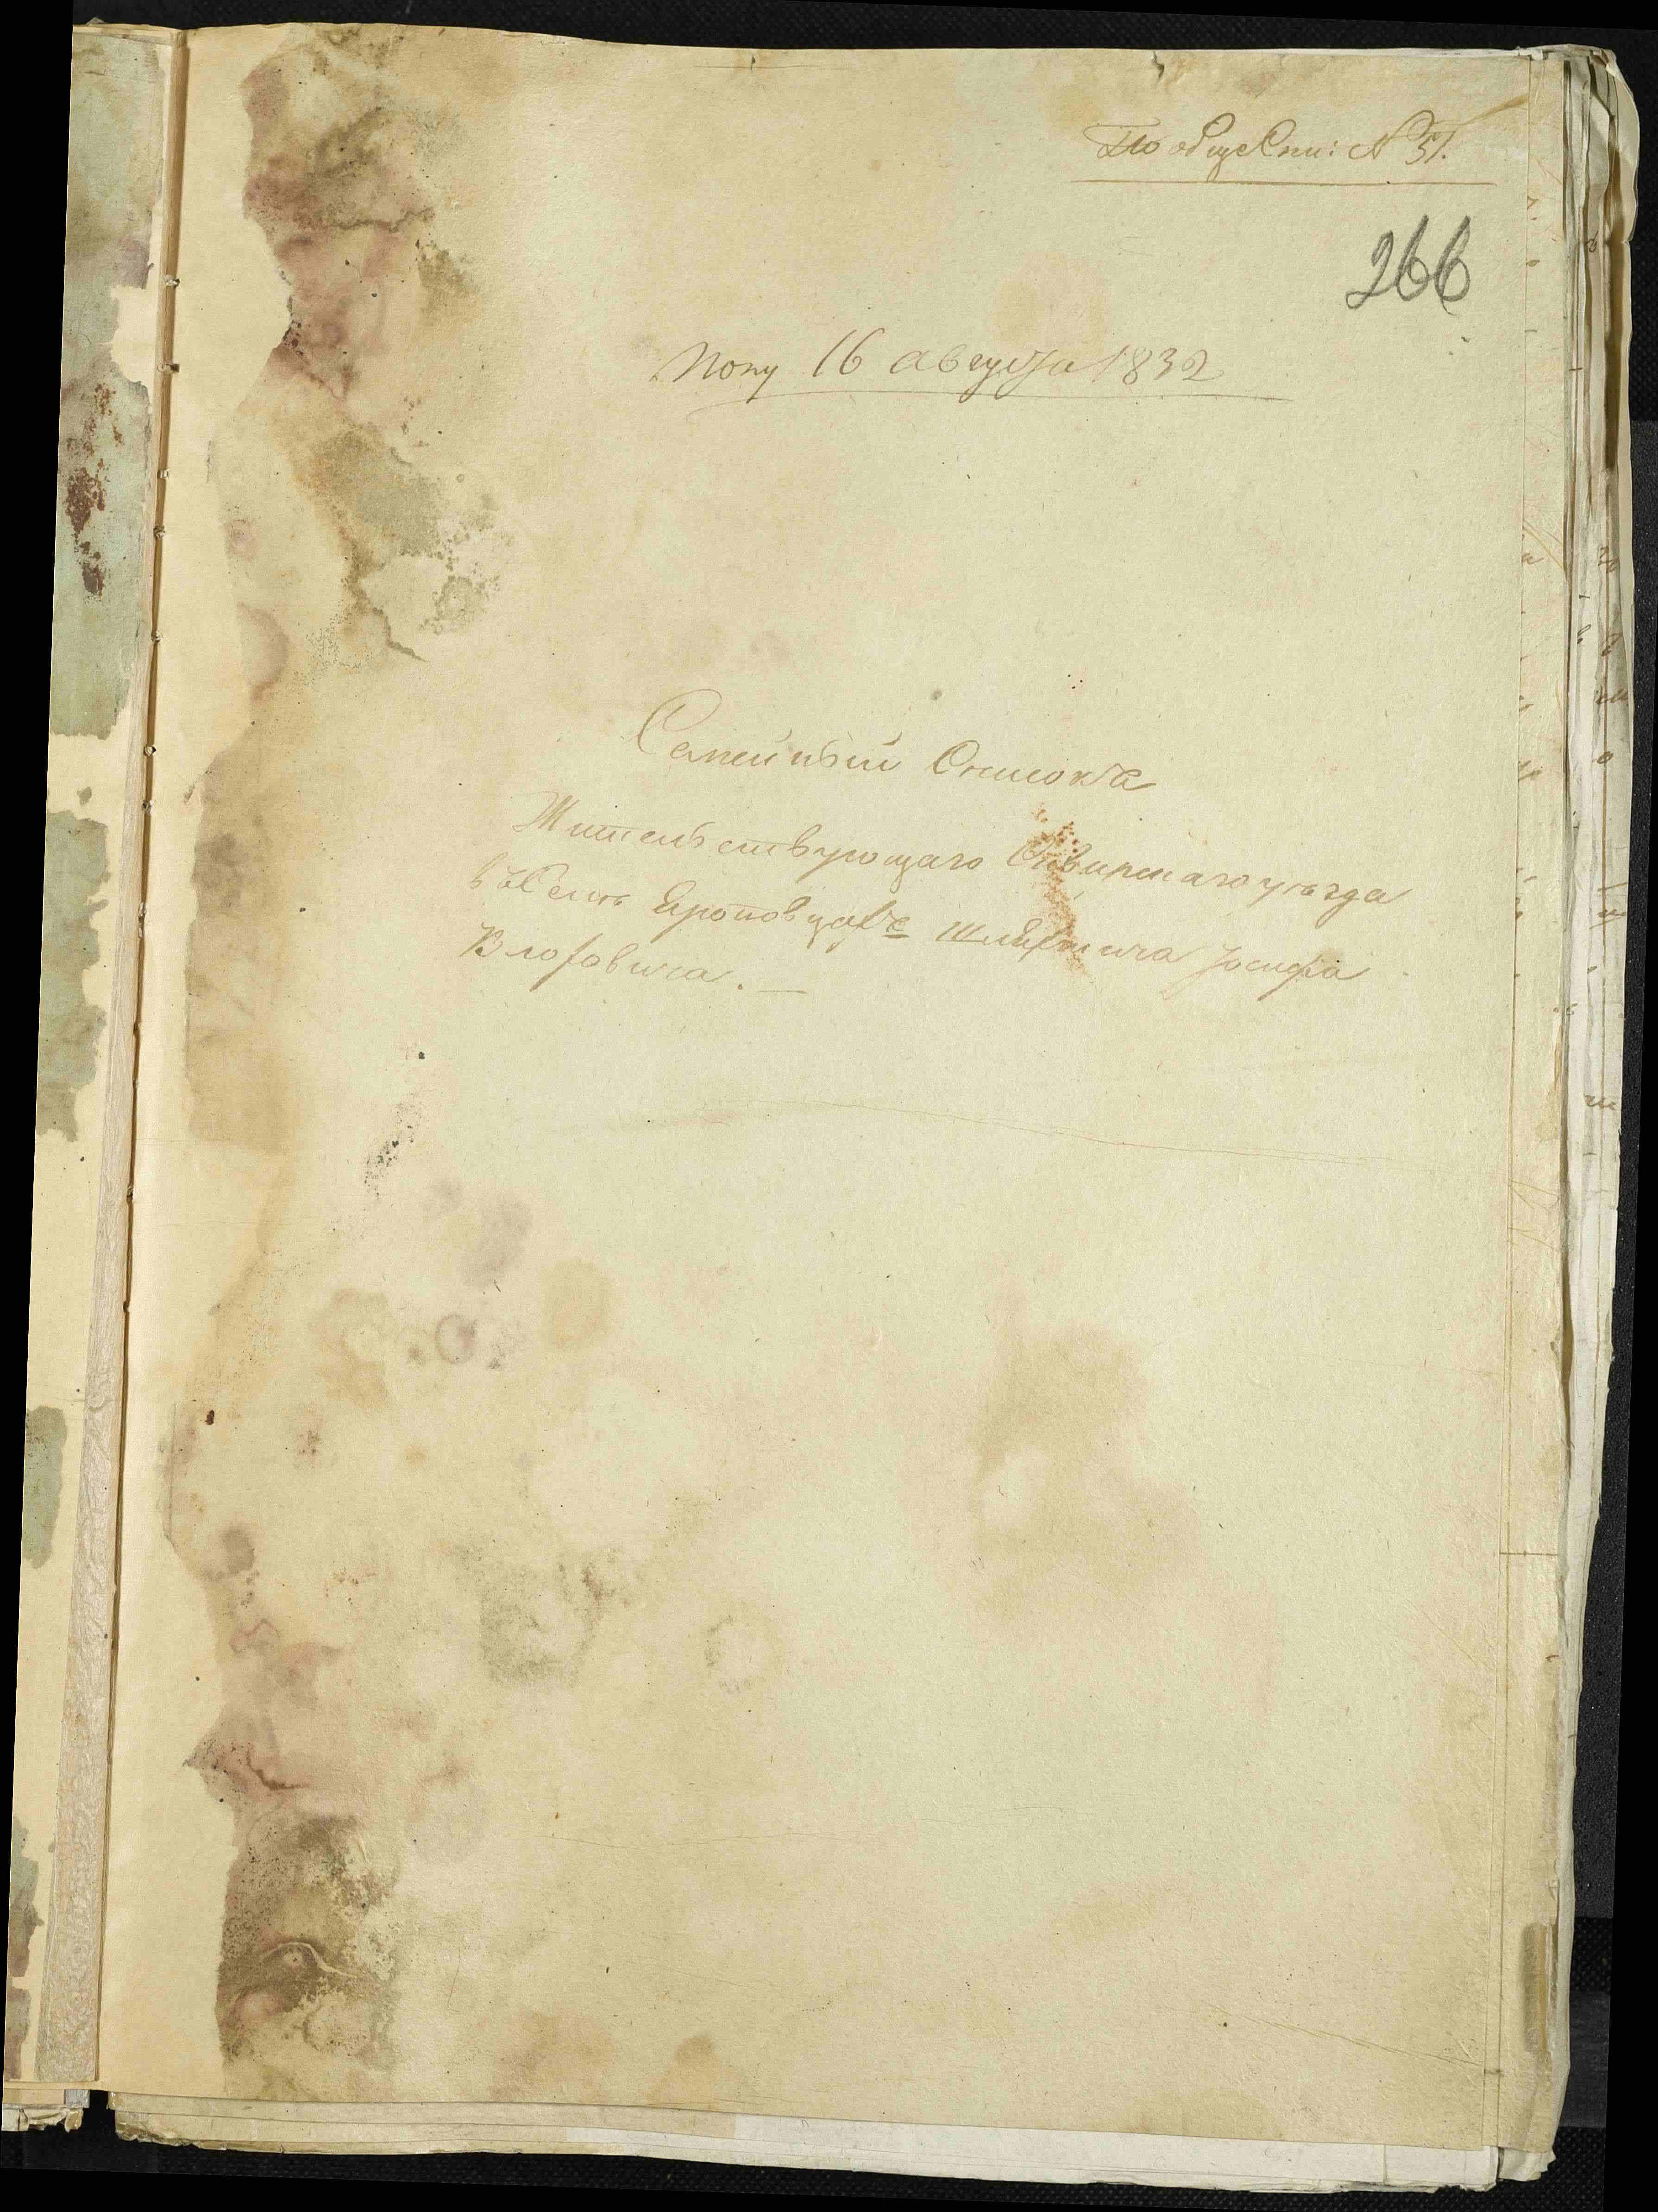 По обще Спи: № 51.
266
Полу 16 августа 1832
Семейный Списокъ
Жительствующаго Сквирскаго уѣзда
въ Селѣ Яроповцахъ Шляхтича Іосифа